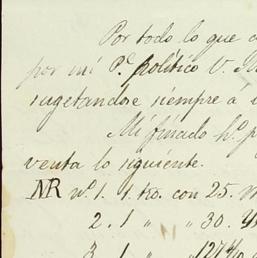 Por todo lo que
por mi P.e político V.
sugetandose siempre à
Mi finado h.o
venta lo siguiente.
NR nº. 1. 1 tro. con 25.
2. 1 " " 30.
3 1 " " 127